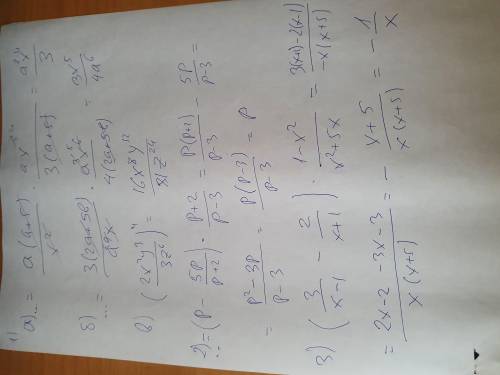 1)
а) ... = a(a+5)/x² · ax⁵/3(a+5) = ax⁴/3
б) ... = 3(2a+5b)/a⁹x · a³x⁶/4(2a+5b) = 3x⁵/4a⁶
в) (2x²y³/3z⁶)⁴ = 16x⁸y¹²/81z²⁴
2) ... = (p - 5p/p+2) · p+2/p-3 = p(p+2)/p-3 - 5p/p-3 =
= p²-3p/p-3 = p(p-3)/p-3 = p
3) (3/x-1 - 2/x+1) · 1-x²/x²+5x = 3(x+1)-2(x-1)/-x(x+5)
= 2x-2-3x-3/x(x+5) = - x+5/x(x+5) = - 1/x